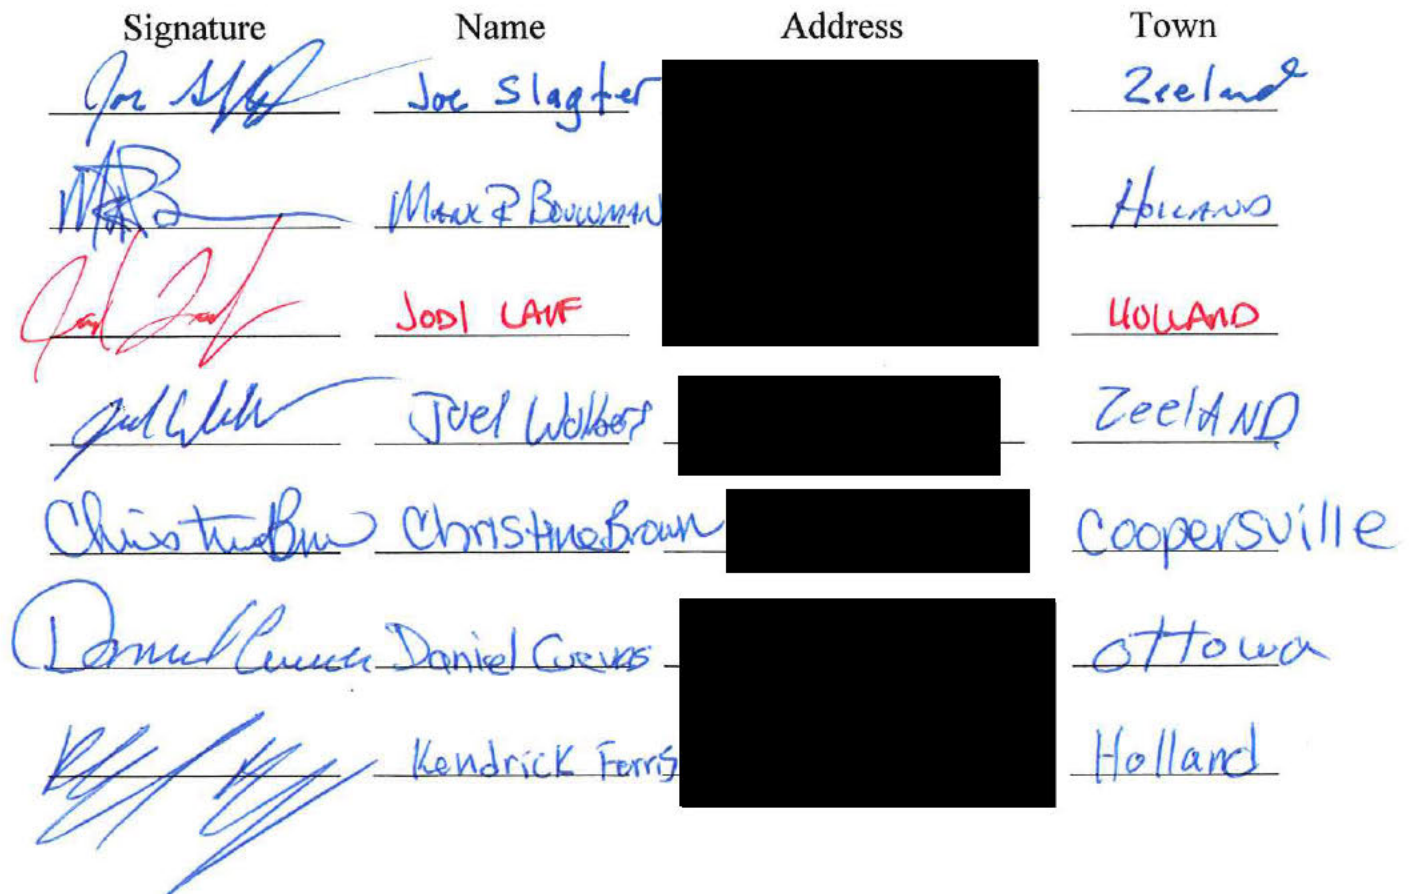 Signature Name Address Town
Joe Slagter Zeeland
Mark R Bouwman Holland
JODI LAUF HOLLAND
Joel Wolbers ZeelAND
Christine Brown Christine Brown Coopersville
Daniel Cuevas Daniel Cuevas Ottowa
Kendrick Ferris Holland